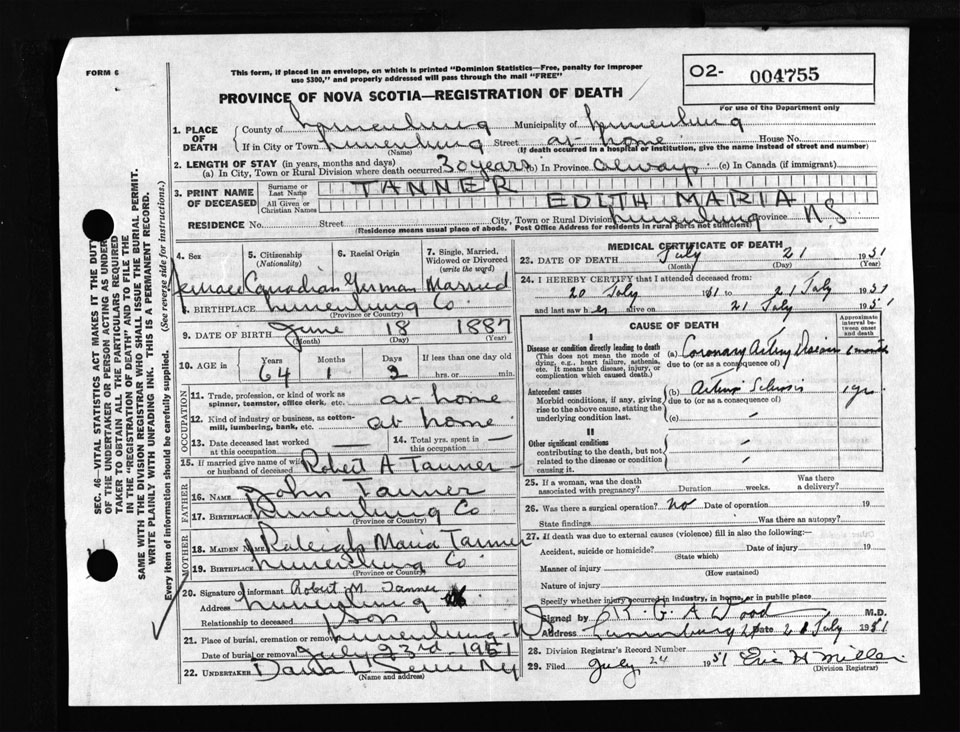 FORM 6
This form, if placed in an envelope, on which is printed "Dominion Statistics—Free, penalty for improper
use $300," and properly addressed will pass through the mail "FREE"
O2- 004755
For use of the Department only
PROVINCE OF NOVA SCOTIA—REGISTRATION OF DEATH
1. PLACE OF DEATH
County of Lunenburg Municipality of Lunenburg
If in City or Town Lunenburg Street at home House No.
(Name) (If death occurred in a hospital or institution, give the name instead of street and number)
2. LENGTH OF STAY (in years, months and days)
(a) In City, Town or Rural Division where death occurred 30 years (b) In Province always (c) In Canada (if immigrant)
3. PRINT NAME OF DECEASED
Surname or Last Name TANNER
All Given or Christian Names EDITH MARIA
RESIDENCE No. Street City, Town or Rural Division Lunenburg Province N.S
(Residence means usual place of abode. Post Office Address for residents in rural parts not sufficient)
4. Sex 5. Citizenship (Nationality) 6. Racial Origin 7. Single, Married, Widowed or Divorced (write the word)
Female Canadian German Married
8. BIRTHPLACE Lunenburg Co.
(Province or Country)
9. DATE OF BIRTH June 18 1887
(Month) (Day) (Year)
10. AGE in Years Months Days If less than one day old
64 1 2 hrs. or min.
OCCUPATION
11. Trade, profession, or kind of work as
spinner, teamster, office clerk, etc. at home
12. Kind of industry or business, as cotton-
mill, lumbering, bank, etc. at home
13. Date deceased last worked at this occupation — 14. Total yrs. spent in this occupation —
15. If married give name of wife or husband of deceased Robert A Tanner
FATHER
16. NAME John Tanner
17. BIRTHPLACE Lunenburg Co
(Province or Country)
MOTHER
18. MAIDEN NAME Raleigh Maria Tanner
19. BIRTHPLACE Lunenburg Co
(Province or Country)
20. Signature of informant Robert M. Tanner
Address Lunenburg
Relationship to deceased Son
21. Place of burial, cremation or removal Lunenburg
Date of burial or removal July 23rd 1951
22. UNDERTAKER
(Name and address)
MEDICAL CERTIFICATE OF DEATH
23. DATE OF DEATH July 21 1951
(Month) (Day) (Year)
24. I HEREBY CERTIFY that I attended deceased from:
20 July 1951 to 21 July 1951
and last saw her alive on 21 July 1951
CAUSE OF DEATH
Approximate interval between onset and death
I
Disease or condition directly leading to death
(This does not mean the mode of
dying, e.g., heart failure, asthenia,
etc. It means the disease, injury, or
complication which caused death.)
(a) Coronary Artery Disease 6 months
due to (or as a consequence of)
Antecedent causes
Morbid conditions, if any, giving
rise to the above cause, stating the
underlying condition last.
(b) 1 yr
due to (or as a consequence of)
(c)
II
Other significant conditions
contributing to the death, but not
related to the disease or condition
causing it.
25. If a woman, was the death associated with pregnancy? Duration weeks. Was there a delivery?
26. Was there a surgical operation? No Date of operation 19
State findings Was there an autopsy?
27. If death was due to external causes (violence) fill in also the following:
Accident, suicide or homicide? Date of injury 19
(State which)
Manner of injury
(How sustained)
Nature of injury
Specify whether injury occurred in industry, in home, or in public place
Signed by R. G. A Wood M.D.
Address Lunenburg Date 21 July 1951
28. Division Registrar's Record Number
29. Filed July 24 1951 Eric H Miller
(Division Registrar)
SEC. 46—VITAL STATISTICS ACT MAKES IT THE DUTY
OF THE UNDERTAKER OR PERSON ACTING AS UNDER-
TAKER TO OBTAIN ALL THE PARTICULARS REQUIRED
IN THE "REGISTRATION OF DEATH" AND TO FILE THE
SAME WITH THE DIVISION REGISTRAR WHO SHALL ISSUE THE BURIAL PERMIT.
WRITE PLAINLY WITH UNFADING INK. THIS IS A PERMANENT RECORD.
Every item of information should be carefully supplied. (See reverse side for instructions.)